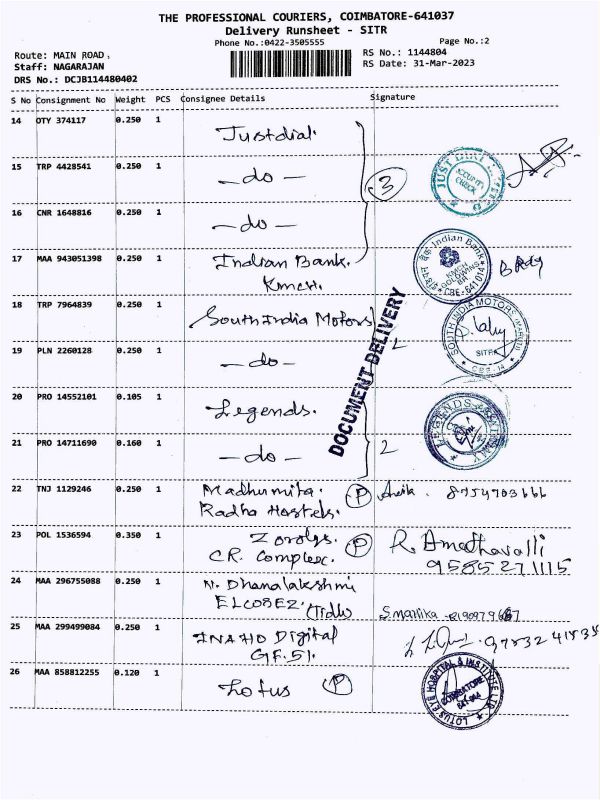 THE PROFESSIONAL COURIERS, COIMBATORE-641037
Delivery Runsheet - SITR
Phone No.:0422-3505555
Page No.:2
Route: MAIN ROAD,
RS No.: 1144804
Staff: NAGARAJAN
RS Date: 31-Mar-2023
DRS No.: DCJB114480402
S No Consignment No Weight PCS Consignee Details Signature
14 OTY 374117 0.250 1 Justdial.
15 TRP 4428541 0.250 1 -do-
3
JUST DIAL
SECURITY CHECK
16 CNR 1648816 0.250 1 -do-
17 MAA 943051398 0.250 1 Indian Bank.
KMCH.
Indian Bank
KMCH
CBE-641 014
18 TRP 7964839 0.250 1 South India Motors
SOUTH INDIA MOTORS
SITRA
CBE-14
19 PLN 2260128 0.250 1 -do-
2
DOCUMENT DELIVERY
20 PRO 14552101 0.105 1 Legends.
LEGENDS
21 PRO 14711690 0.160 1 -do-
2
22 TNJ 1129246 0.250 1 Madhumita. P 8754703666
Radha Hostels.
23 POL 1536594 0.350 1 P R. Amuthavalli
C.R. Complex. 9585271115
24 MAA 296755088 0.250 1 N. Dhanalakshmi
25 MAA 299499084 0.250 1 Digital
GF.51.
26 MAA 858812255 0.120 1 Lotus P
LOTUS EYE HOSPITAL & INSTITUTE LTD
COIMBATORE
641 014